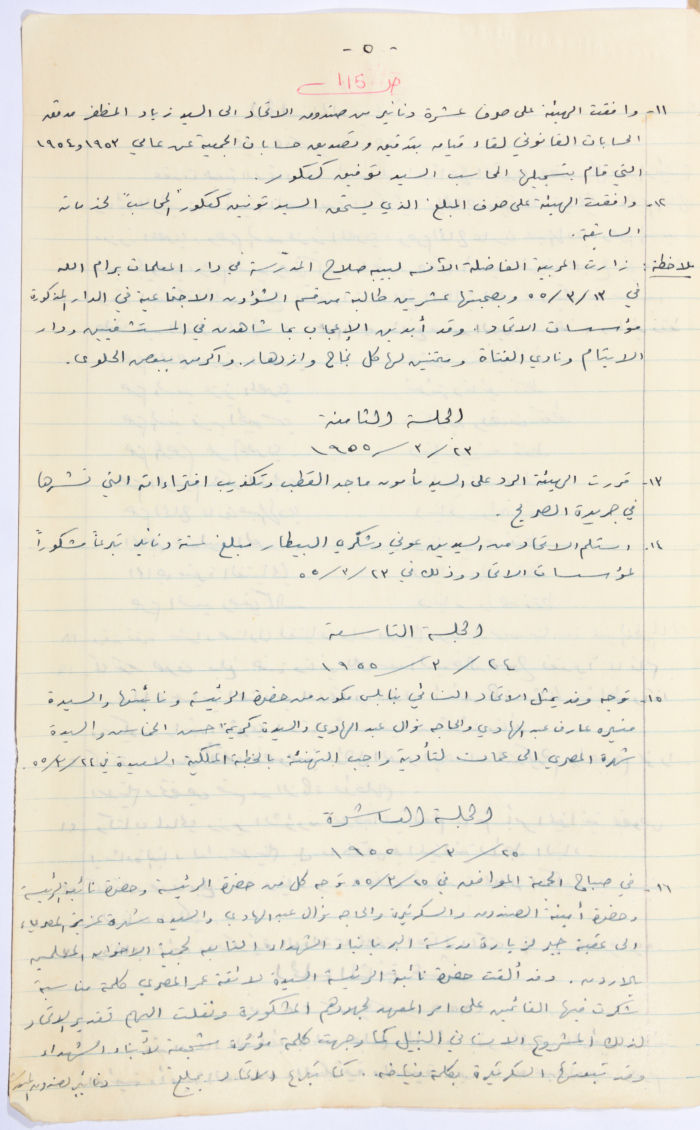 - ٥ -
ص 115
١١- وافقت الهيئة على صرف عشرة دنانير من صندوق الاتحاد الى السيد زياد المظفر مدقق
الحسابات القانوني لقاء قيامه بتدقيق وتصديق حسابات الجمعية عن عامي ١٩٥٣ و ١٩٥٤
التي قام بتسجيلها المحاسب السيد توفيق كعكور.
١٢- وافقت الهيئة على صرف المبلغ الذي يستحق السيد توفيق كعكور "المحاسب" لخدماته
السابقة.
ملاحظة: زارت المربية الفاضلة الآنسه لبيبه صلاح المدرّسة في دار المعلمات برام الله
في ١٣/٣/٥٥ وبصحبتها عشرين طالبة من قسم الشؤون الاجتماعية في الدار المذكورة
مؤسسات الاتحاد، وقد أبدين الإعجاب بما شاهدن في المستشفيين ودار
الايتام ونادي الفتاة ومتمنين لها كل نجاح وازدهار. واكرمن ببعض الحلوى.
الجلسة الثامنة
٢٣/٣/١٩٥٥
١٣- قررت الهيئة الرد على السيد مأمون ماجد القطب وتكذيب افتراءاته التي نشرها
في جريدة الصريح.
١٤- استلم الاتحاد من السيدين عوني وشكري البيطار مبلغ خمسة دنانير تبرعاً مشكوراً
لمؤسسات الاتحاد وذلك في ٢٣/٣/٥٥
الجلسة التاسعة
٢٤/٣/١٩٥٥
١٥- توجه وفد يمثل الاتحاد النسائي بنابلس مكون من حضرة الرئيسة ونائبتها والسيدة
منيره عارف عبد الهادي والحاجه نوال عبد الهادي والسيدة كريمة حسن الخماش والسيدة
شهرة المصري الى عمان لتأدية واجب التهنئة بالخطبة الملكية السعيدة في ٢٤/٣/٥٥.
الجلسة العاشرة
٢٥/٣/١٩٥٥
١٦- في صباح الجمعة الموافق في ٢٥/٣/٥٥ توجه كل من حضرة الرئيسة وحضرة نائبة الرئيسة
وحضرة أمينة الصندوق والسكرتيرة والحاجه نوال عبد الهادي والسيده شهرة عزيز المصري،
الى عقبة جبر لزيارة مدرسة البر بابناء الشهداء التابعه لجمعية الاخوان المسلمين
بالاردن. وقد ألقت حضرة نائبة الرئيسة السيدة لائقة عمر المصري كلمة مناسبة
شكرت فيها القائمين على امر المعهد لجهودهم المشكورة ونقلت اليهم تقدير الاتحاد
لذلك المشروع الانساني النبيل كما وجهت كلمة مؤثرة مشجعة لأبناء الشهداء
وقد تبعتها السكرتيرة بكلمة مماثله. كما تبرع الاتحاد بمبلغ دنانير لصندوق